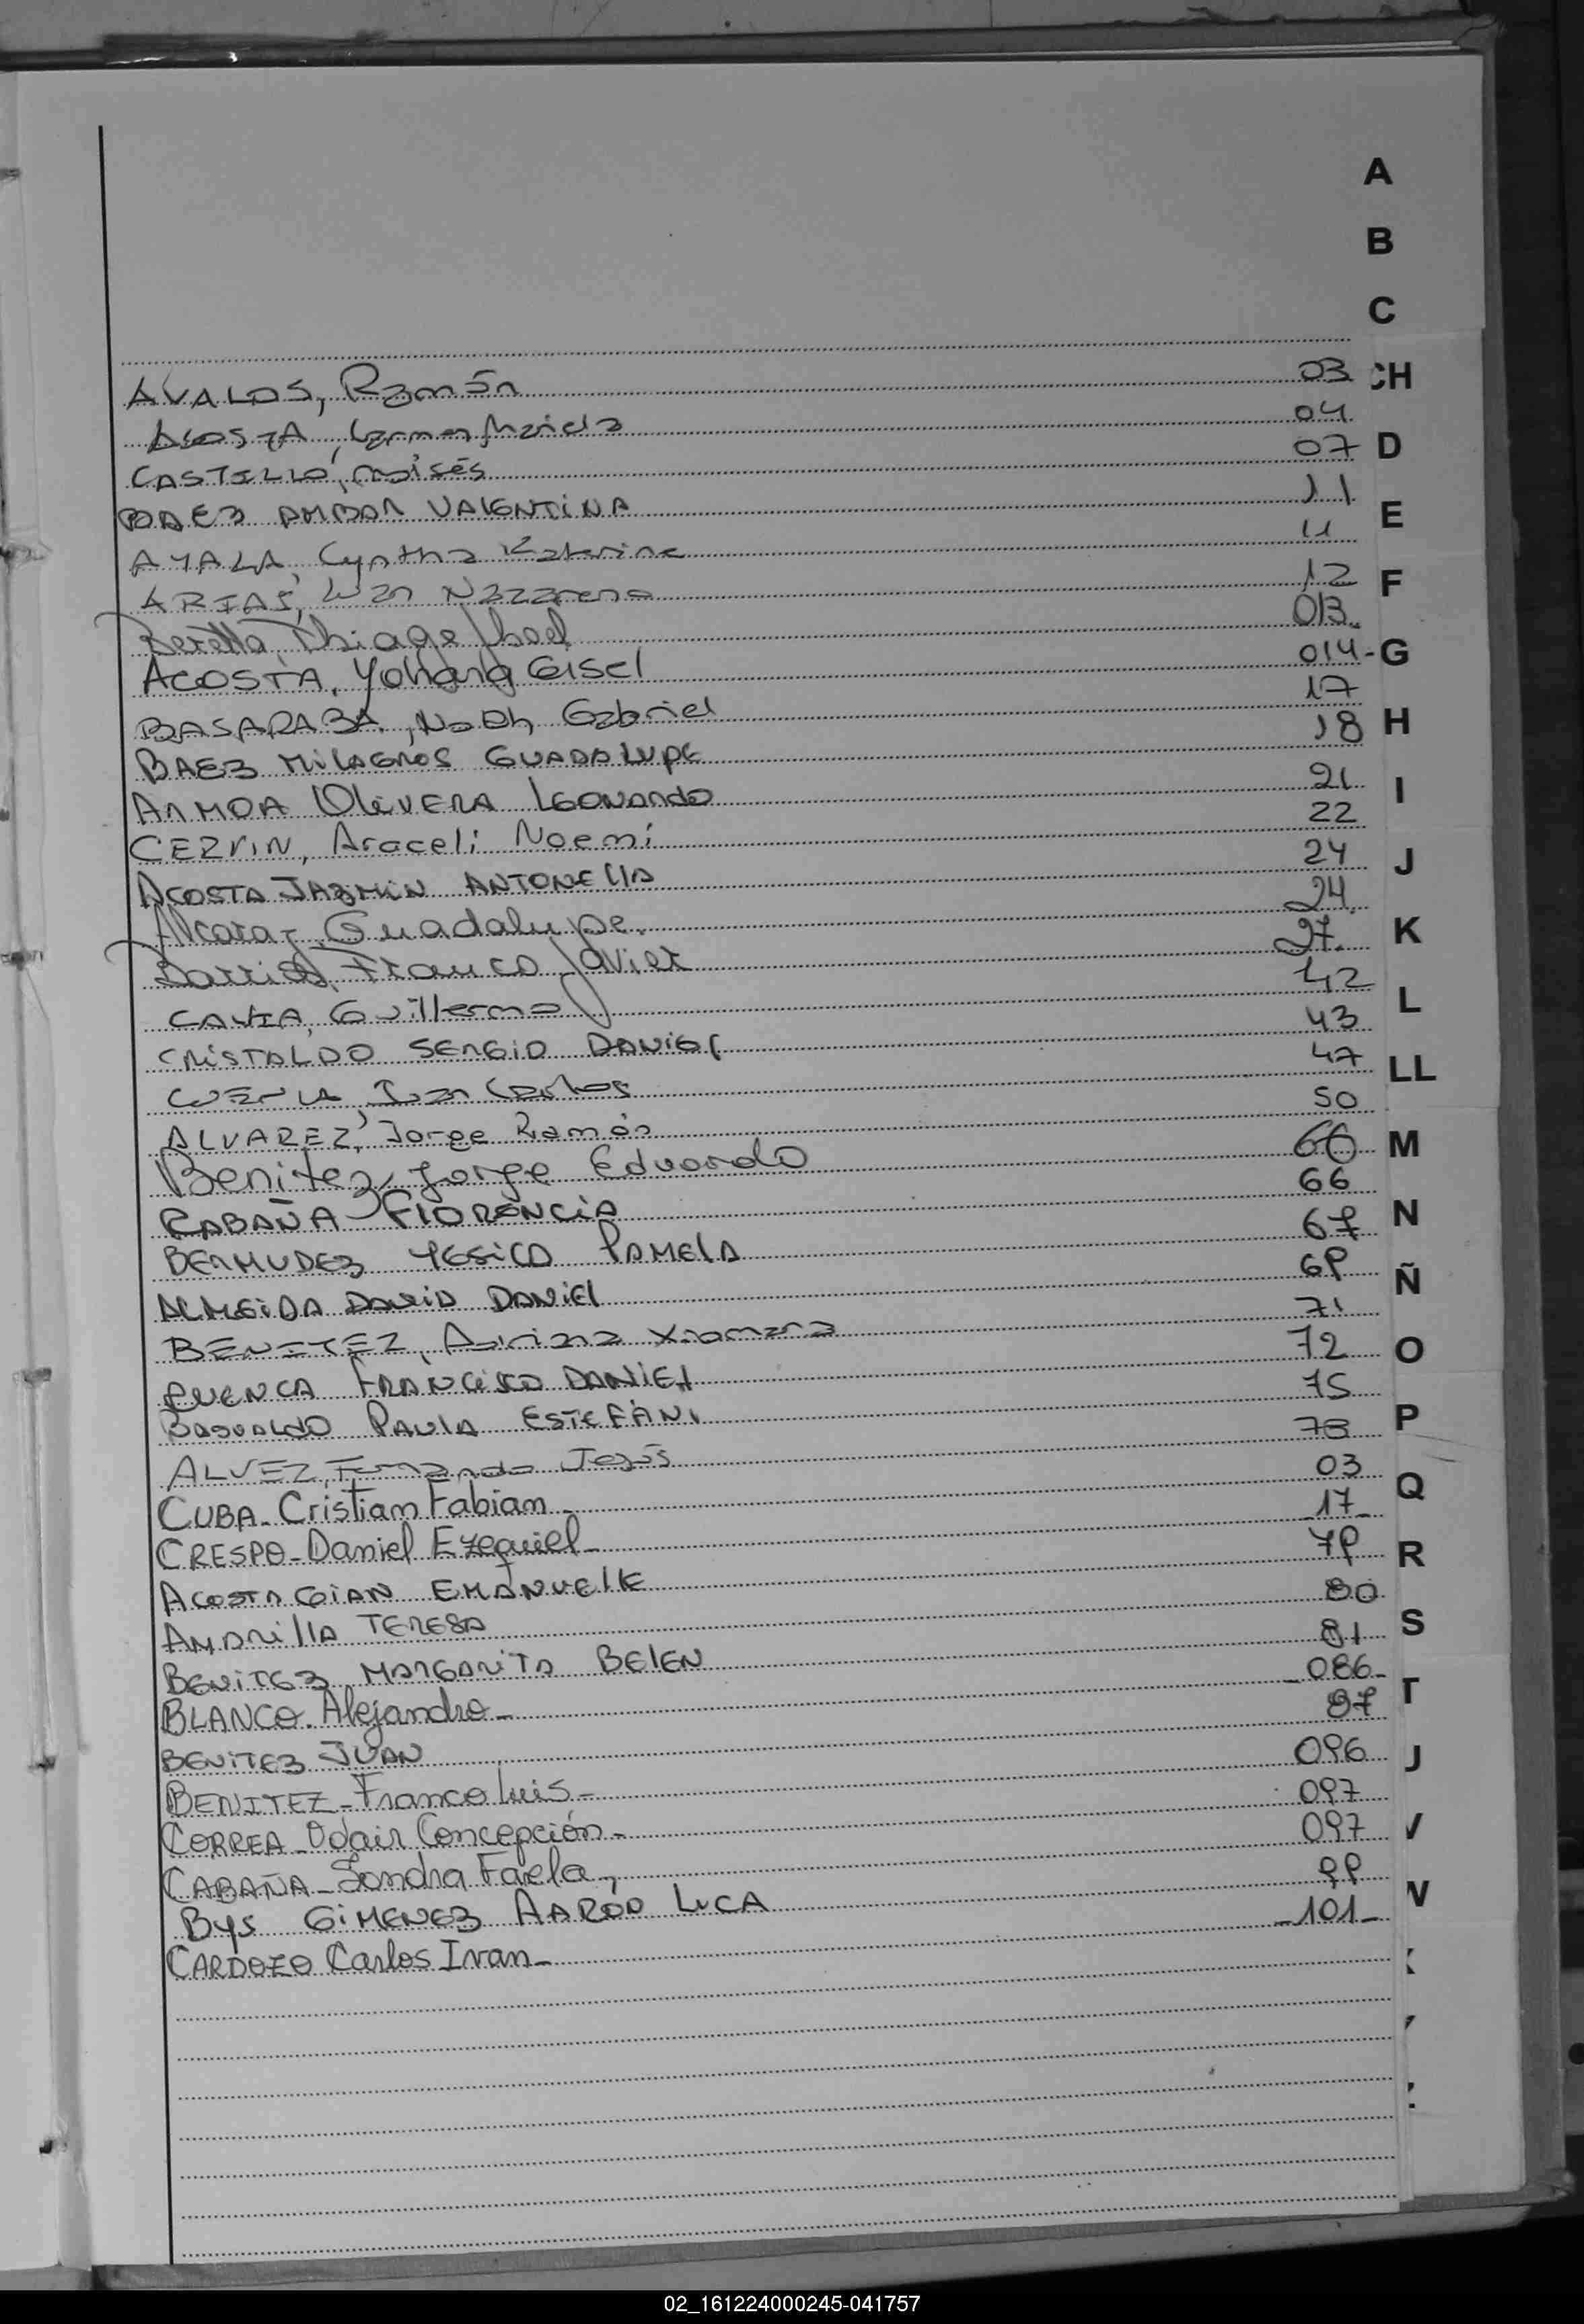 A
B
C
AVALOS, Ramón 03 CH
ACOSTA, Carmen Mariela 04
CASTILLO, Moisés 07 D
BAEZ AMBAR VALENTINA 11
AYALA, Cynthia Katerine 11 E
ARIAS, Luzn Nazareno 12 F
Beretta, Thiago Joel 013.
ACOSTA, Yohana Gisel 014- G
BASARABA, Noah Gabriel 17
BAEZ MILAGROS GUADALUPE 18 H
ARMOA OLIVERA LEONARDO 21 I
CEZVIN, Araceli Noemí 22
ACOSTA JAZMIN ANTONELLA 24 J
Alcaraz, Guadalupe. 24.
Barrios, Franco Javier 27. K
CAVIA, Guillermo 42
CRISTALDO SERGIO DANIEL 43 L
CUENCA, Juan Carlos 47 LL
ALVAREZ, Jorge Ramón 50
Benitez, Jorge Eduardo 66 M
CABAÑA FLORENCIA 66
BERMUDEZ YESICA PAMELA 67 N
ALMEIDA DAVID DANIEL 69 Ñ
BENITEZ, Xiomara 71
CUENCA FRANCISCO DANIEL 72 O
BASUALDO PAULA ESTEFANI 75
ALVEZ, Fernando Jesús 78 P
CUBA - Cristiam Fabiam - 03
CRESPO - Daniel Ezequiel - 17 - Q
ACOSTA GIAN EMANUELLE 79 R
AMARILLA TERESA 80
BENITEZ MARGARITA BELEN 81 S
BLANCO. Alejandro - - 086 -
BENITEZ JUAN 87 T
BENITEZ - Franco Luis - 096
CORREA - Odair Concepción - 097 U
CABAÑA - Sandra Faela - 097 V
BYS GIMENEZ AARÓN LUCA 99
CARDOZO Carlos Ivan - - 101 - W
02_161224000245-041757